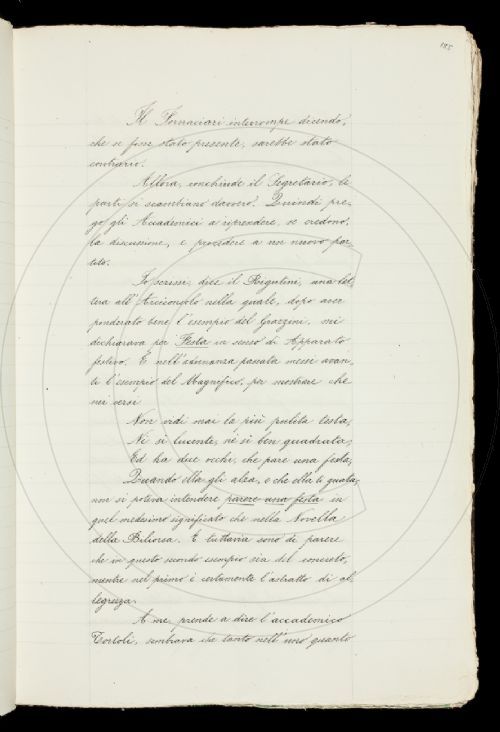 185
Il Fornaciari interrompe dicendo,
che se fosse stato presente, sarebbe stato
contrario.
Allora, conchiude il Segretario, le
parti si scambiano davvero. Quindi pre-
go gli Accademici a riprendere, se credono,
la discussione, e procedere a un nuovo par-
tito.
Io scrissi, dice il Rigutini, una let-
tera all'Arciconsolo nella quale, dopo aver
ponderato bene l'esempio del Grazzini, mi
dichiarava per Festa in senso di Apparato
festivo. E nell'adunanza passata messi avan-
ti l'esempio del Magnifico, per mostrare che
nei versi
Non vidi mai la più pulita testa,
Nè sì lucente, nè sì ben quadrata;
Ed ha due occhi, che pare una festa,
Quando ella gli alza, e che ella ti guata,
non si poteva intendere parere una festa in
quel medesimo significato che nella Novella
della . E tuttavia sono di parere
che in questo secondo esempio sia del concreto,
mentre nel primo è certamente l'astratto di al-
legrezza.
A me, prende a dire l'accademico
Tortoli, sembrava che tanto nell'uno quanto